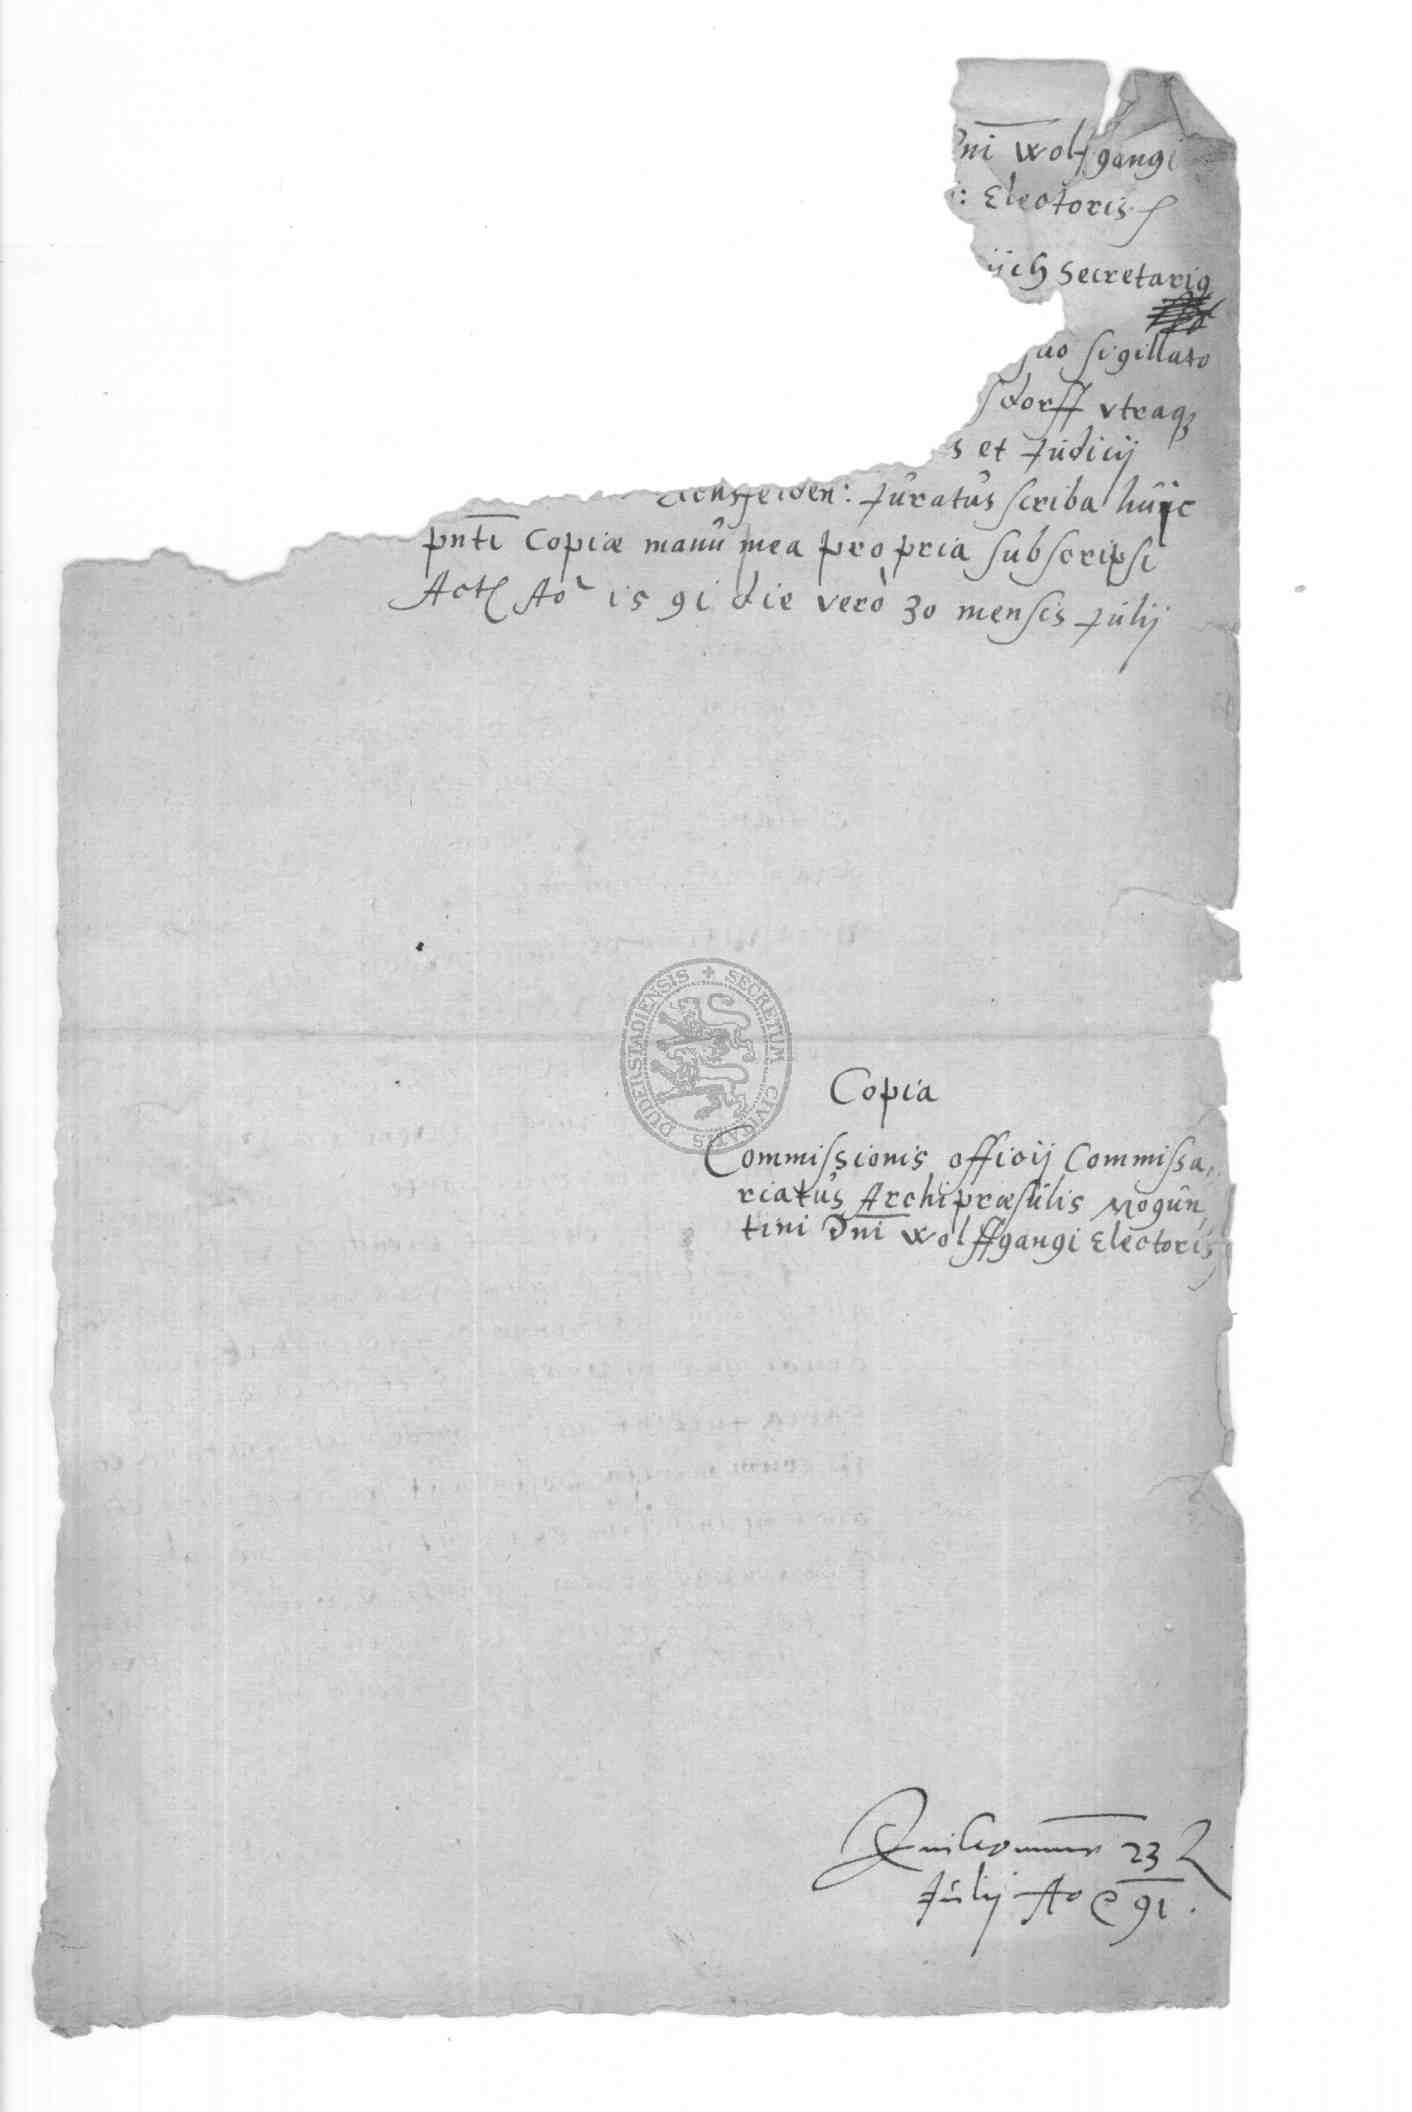 Dni Wolfgangi
: Electoris
Secretari9
suo sigillato
sdorff vtraq3
s et Judicij
Eichsfelden: Juratus scriba huic
pnti Copiæ manu mea propria subscripsi
Act Ao 1591 die verò 30 mensis Julij
DUDERSTADIENSIS + SECRETUM CIVITATIS
Copia
Commissionis officij Commissa
riatus Archipræsulis Mogun
tini Dni Wolffgangi Electoris
23
Julij Ao 91.